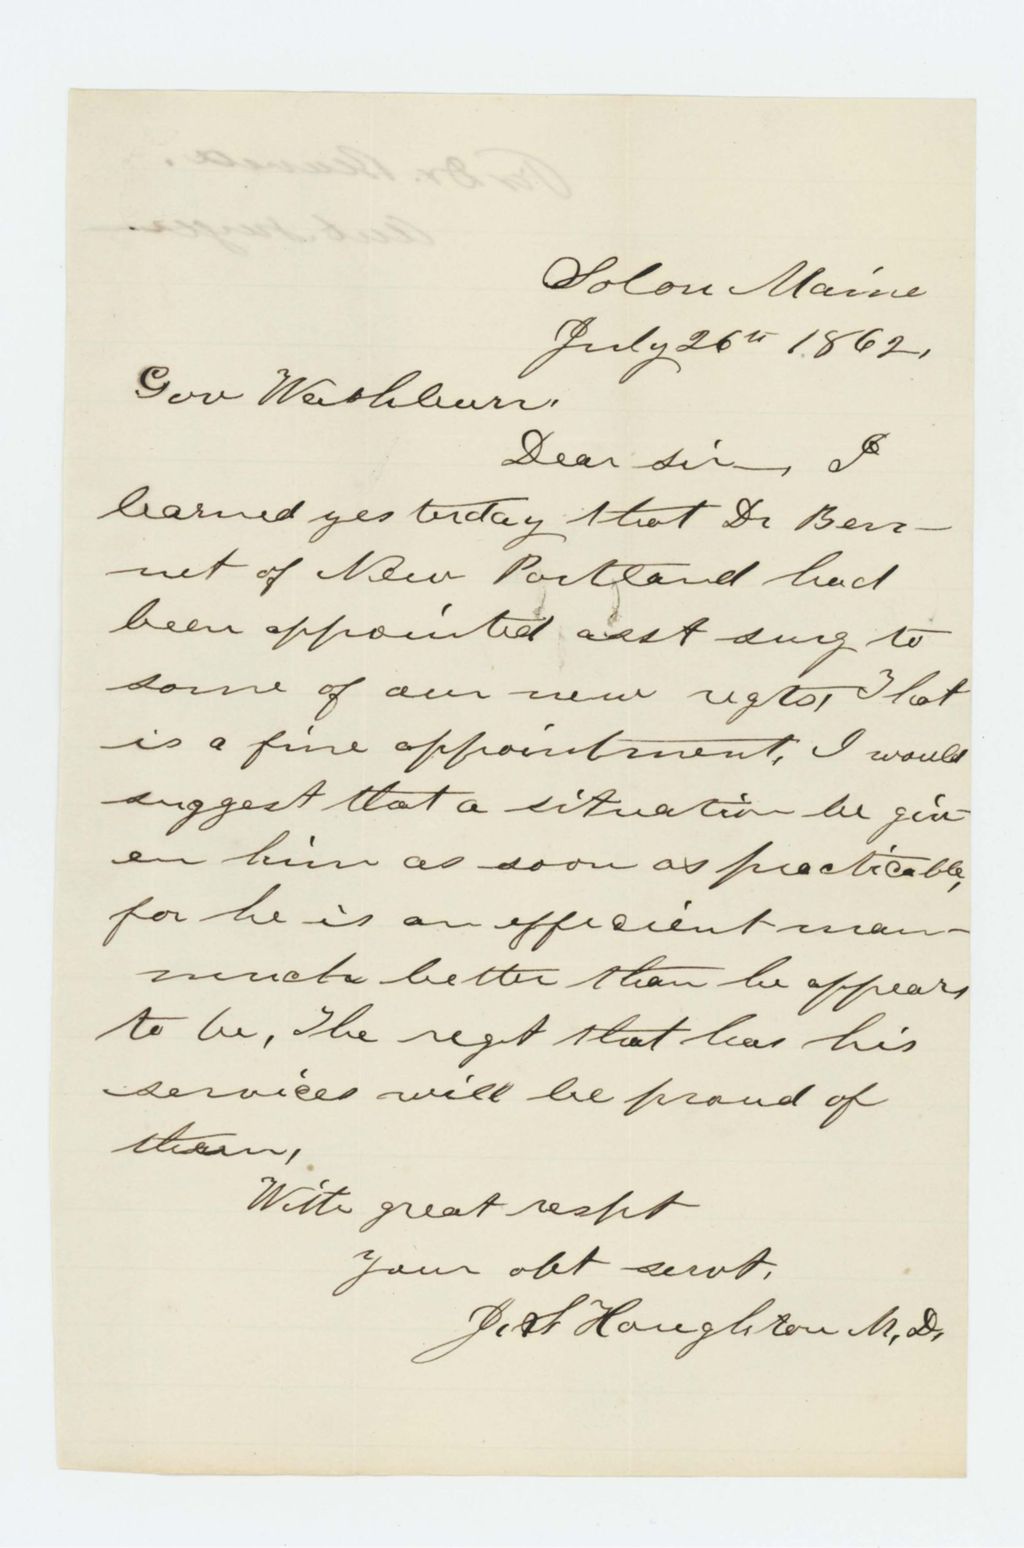 Solon Maine
July 26th 1862,
Gov Washburn.
Dear sir, I
learned yesterday that Dr Ben-
net of New Portland had
been appointed asst surg to
some of our new regts, That
is a fine appointment, I would
suggest that a situation be giv-
en him as soon as practicable,
for he is an efficient man—
much better than he appears
to be, The regt that has his
services will be proud of
them,
With great respt
Your obt servt,
Houghton M, D,